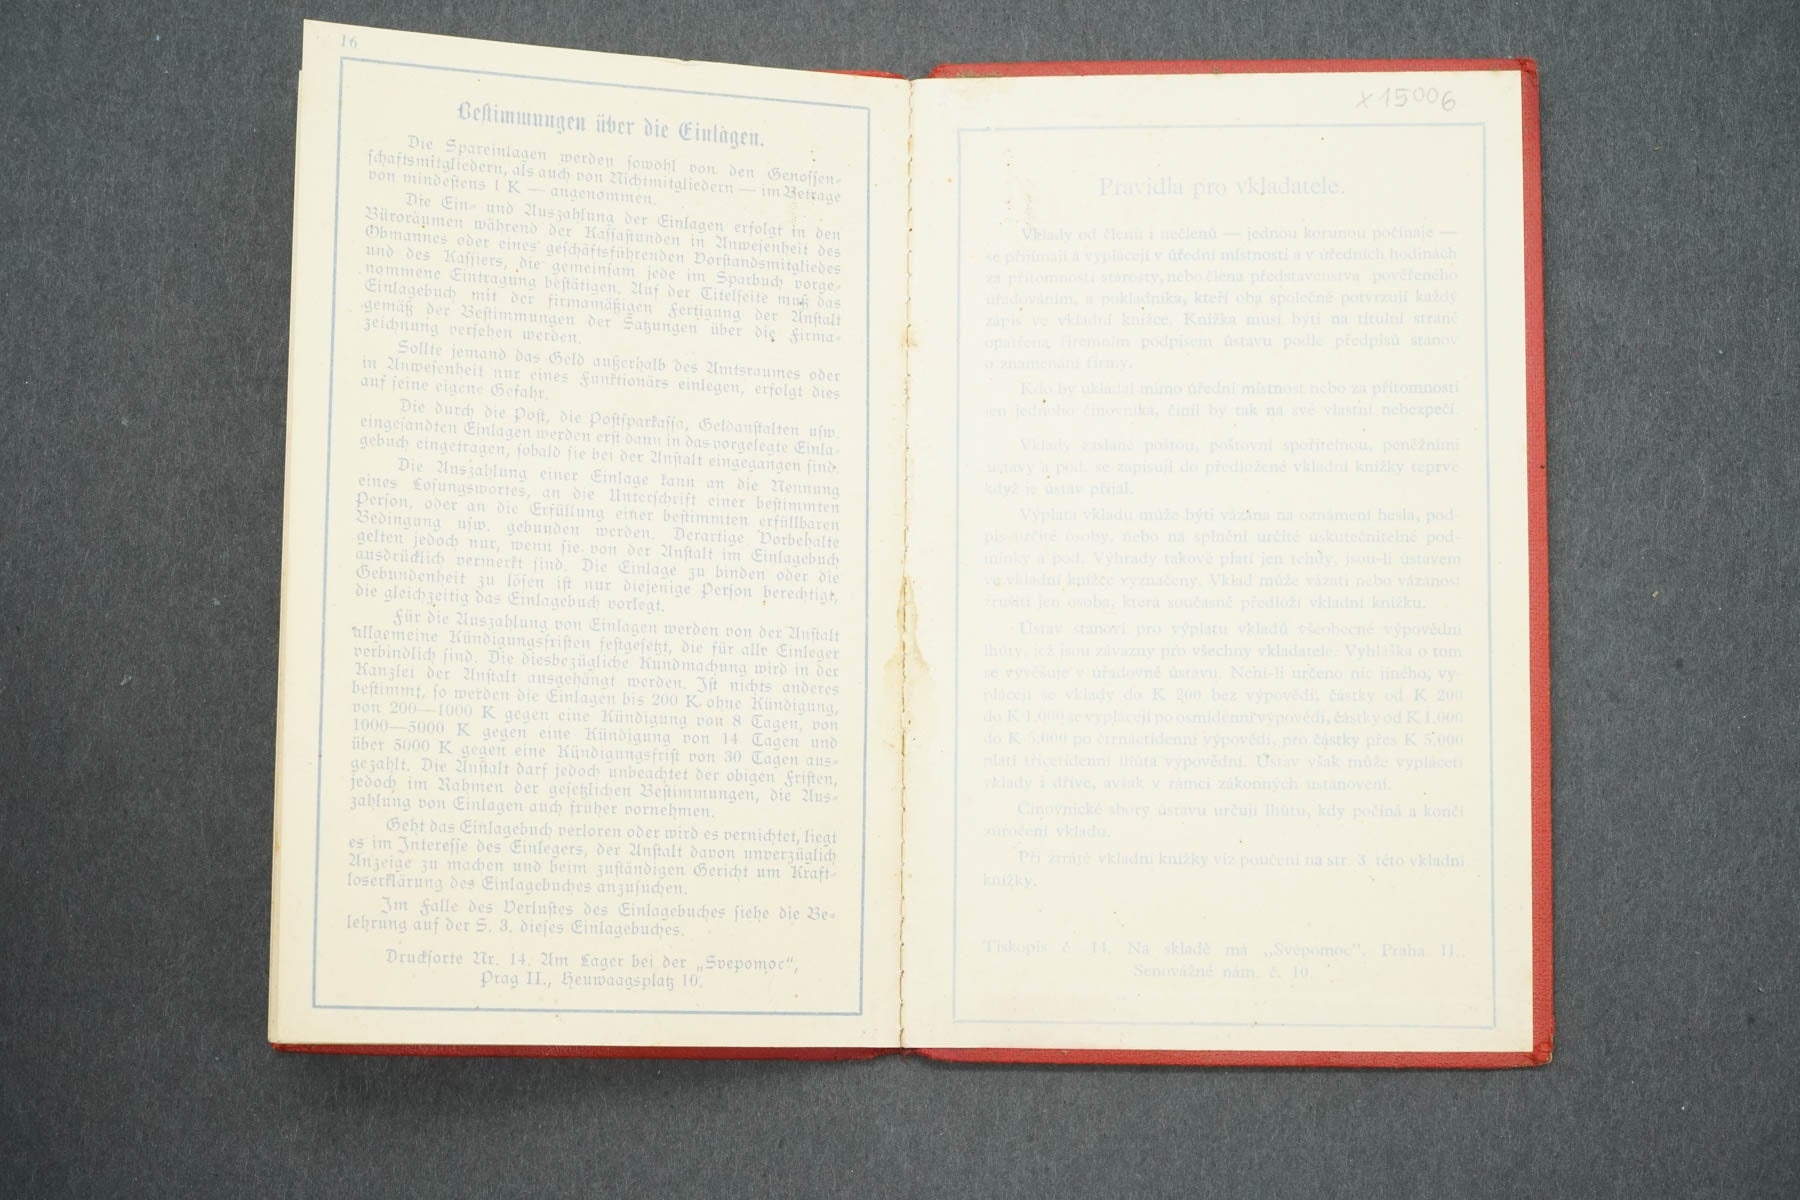 16
Bestimmungen über die Einlagen.
Die Spareinlagen werden sowohl von den Genossen-
schaftsmitgliedern, als auch von Nichtmitgliedern — im Betrage
von mindestens 1 K — angenommen.
Die Ein- und Auszahlung der Einlagen erfolgt in den
Büroräumen während der Kassastunden in Anwesenheit des
Obmannes oder eines geschäftsführenden Vorstandsmitgliedes
und des Kassiers, die gemeinsam jede im Sparbuch vorge-
nommene Eintragung bestätigen. Auf der Titelseite muß das
Einlagebuch mit der firmamäßigen Fertigung der Anstalt
gemäß der Bestimmungen der Satzungen über die Firma-
zeichnung versehen werden.
Sollte jemand das Geld außerhalb des Amtsraumes oder
in Anwesenheit nur eines Funktionärs einlegen, erfolgt dies
auf seine eigene Gefahr.
Die durch die Post, die Postsparkassa, Geldanstalten usw.
eingesandten Einlagen werden erst dann in das vorgelegte Einla-
gebuch eingetragen, sobald sie bei der Anstalt eingegangen sind.
Die Auszahlung einer Einlage kann an die Nennung
eines Losungswortes, an die Unterschrift einer bestimmten
Person, oder an die Erfüllung einer bestimmten erfüllbaren
Bedingung usw. gebunden werden. Derartige Vorbehalte
gelten jedoch nur, wenn sie von der Anstalt im Einlagebuch
ausdrücklich vermerkt sind. Die Einlage zu binden oder die
Gebundenheit zu lösen ist nur diejenige Person berechtigt,
die gleichzeitig das Einlagebuch vorlegt.
Für die Auszahlung von Einlagen werden von der Anstalt
allgemeine Kündigungsfristen festgesetzt, die für alle Einleger
verbindlich sind. Die diesbezügliche Kundmachung wird in der
Kanzlei der Anstalt ausgehängt werden. Ist nichts anderes
bestimmt, so werden die Einlagen bis 200 K ohne Kündigung,
von 200—1000 K gegen eine Kündigung von 8 Tagen, von
1000—5000 K gegen eine Kündigung von 14 Tagen und
über 5000 K gegen eine Kündigungsfrist von 30 Tagen aus-
gezahlt. Die Anstalt darf jedoch unbeachtet der obigen Fristen,
jedoch im Rahmen der gesetzlichen Bestimmungen, die Aus-
zahlung von Einlagen auch früher vornehmen.
Geht das Einlagebuch verloren oder wird es vernichtet, liegt
es im Interesse des Einlegers, der Anstalt davon unverzüglich
Anzeige zu machen und beim zuständigen Gericht um Kraft-
loserklärung des Einlagebuches anzusuchen.
Im Falle des Verlustes des Einlagebuches siehe die Be-
lehrung auf der S. 3. dieses Einlagebuches.
Drucksorte Nr. 14. Am Lager bei der „Svepomoc“,
Prag II., Heuwaagsplatz 10.
x 15006
Pravidla pro vkladatele.
Vklady od členů i nečlenů — jednou korunou počínaje —
se přijímají a vyplácejí v úřední místnosti a v úředních hodinách
za přítomnosti starosty, nebo člena představenstva pověřeného
úřadováním, a pokladníka, kteří oba společně potvrzují každý
zápis ve vkladní knížce. Knížka musí býti na titulní straně
opatřena firemním podpisem ústavu podle předpisů stanov
o znamenání firmy.
Kdo by ukládal mimo úřední místnost nebo za přítomnosti
jen jednoho činovníka, činil by tak na své vlastní nebezpečí.
Vklady zaslané poštou, poštovní spořitelnou, peněžními
ústavy a pod. se zapisují do předložené vkladní knížky teprve
když je ústav přijal.
Výplata vkladu může býti vázána na oznámení hesla, pod-
pis určité osoby, nebo na splnění určité uskutečnitelné pod-
mínky a pod. Výhrady takové platí jen tehdy, jsou-li ústavem
ve vkladní knížce vyznačeny. Vklad může vázati nebo vázanost
zrušiti jen osoba, která současně předloží vkladní knížku.
Ústav stanoví pro výplatu vkladů všeobecné výpovědní
lhůty, jež jsou závazny pro všechny vkladatele. Vyhláška o tom
se vyvěšuje v úřadovně ústavu. Není-li určeno nic jiného, vy-
plácejí se vklady do K 200 bez výpovědi, částky od K 200
do K 1.000 se vyplácejí po osmidenní výpovědi, částky od K 1.000
do K 5.000 po čtrnáctidenní výpovědi, pro částky přes K 5.000
platí třicetidenní lhůta výpovědní. Ústav však může vypláceti
vklady i dříve, avšak v rámci zákonných ustanovení.
Činovnické sbory ústavu určují lhůtu, kdy počíná a končí
zúročení vkladu.
Při ztrátě vkladní knížky viz poučení na str. 3 této vkladní
knížky.
Tiskopis č. 14. Na skladě má „Svépomoc“, Praha II.,
Senovážné nám. č. 10.